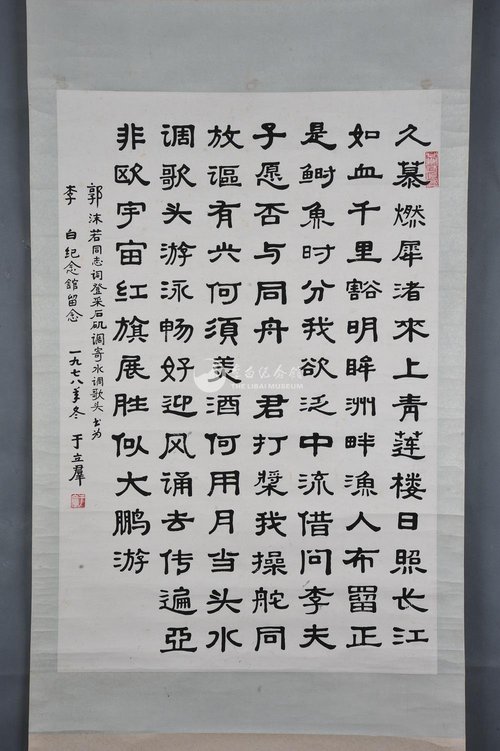 久慕燃犀渚來上青蓮楼日照长江
如血千里豁明眸洲畔漁人布罶正
是鲥魚时分我欲泛中流借问李夫
子愿否与同舟君打槳我操舵同
放讴有六何須美酒何用月当头水
调歌头游泳畅好迎风诵去传遍亞
非欧宇宙红旗展胜似大鹏游
郭沫若同志词登采石矶调寄水调歌头书为
李白纪念館留念 一九七八年冬 于立羣
李白纪念馆
THE LIBAI MUSEUM